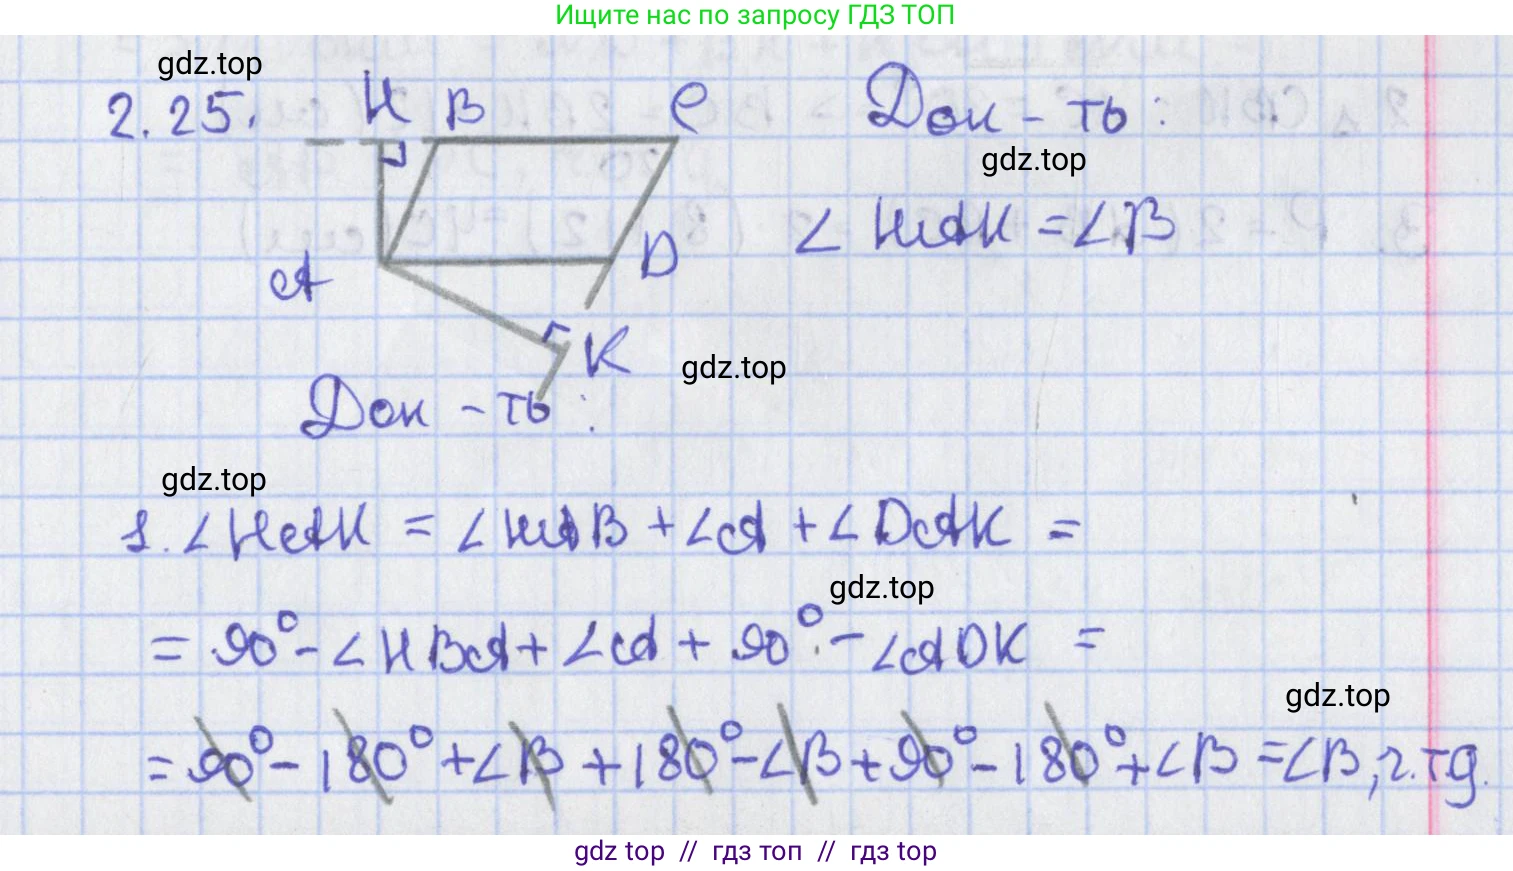 Ищите нас по запросу ГДЗ ТОП
gdz.top
2.25.
H B C
Док-ть:
gdz.top
∠HAK = ∠B
A
D
K
gdz.top
Док-ть:
gdz.top
1. ∠HAK = ∠HAB + ∠A + ∠DAK =
gdz.top
= 90° - ∠HBA + ∠A + 90° - ∠ADK =
gdz.top
= 90° - 180° + ∠B + 180° - ∠B + 90° - 180° + ∠B = ∠B, ч.т.д.
gdz top // гдз топ // gdz top